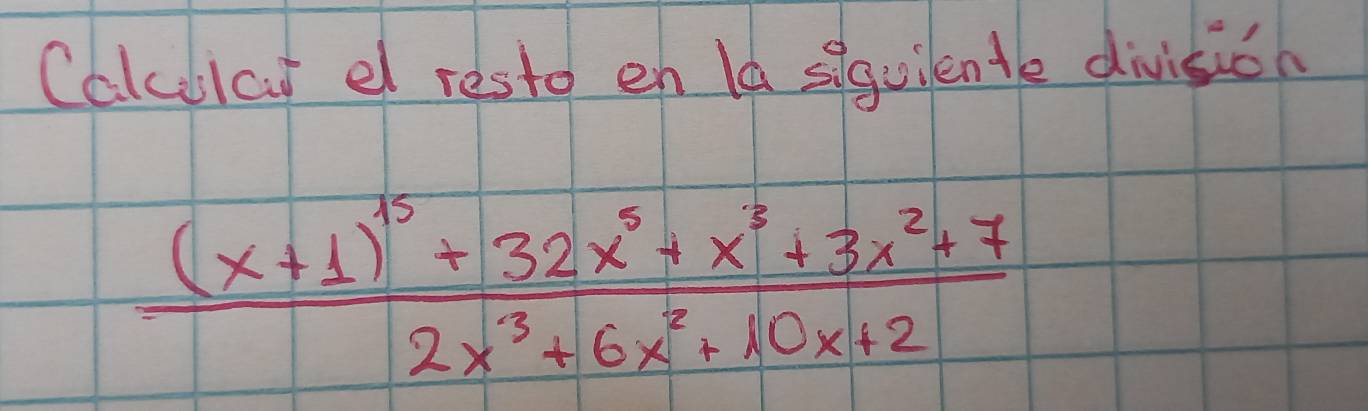 Calcular el resto en la siguiente división
(x+1)¹⁵ + 32x⁵ + x³ + 3x² + 7
2x³ + 6x² + 10x + 2